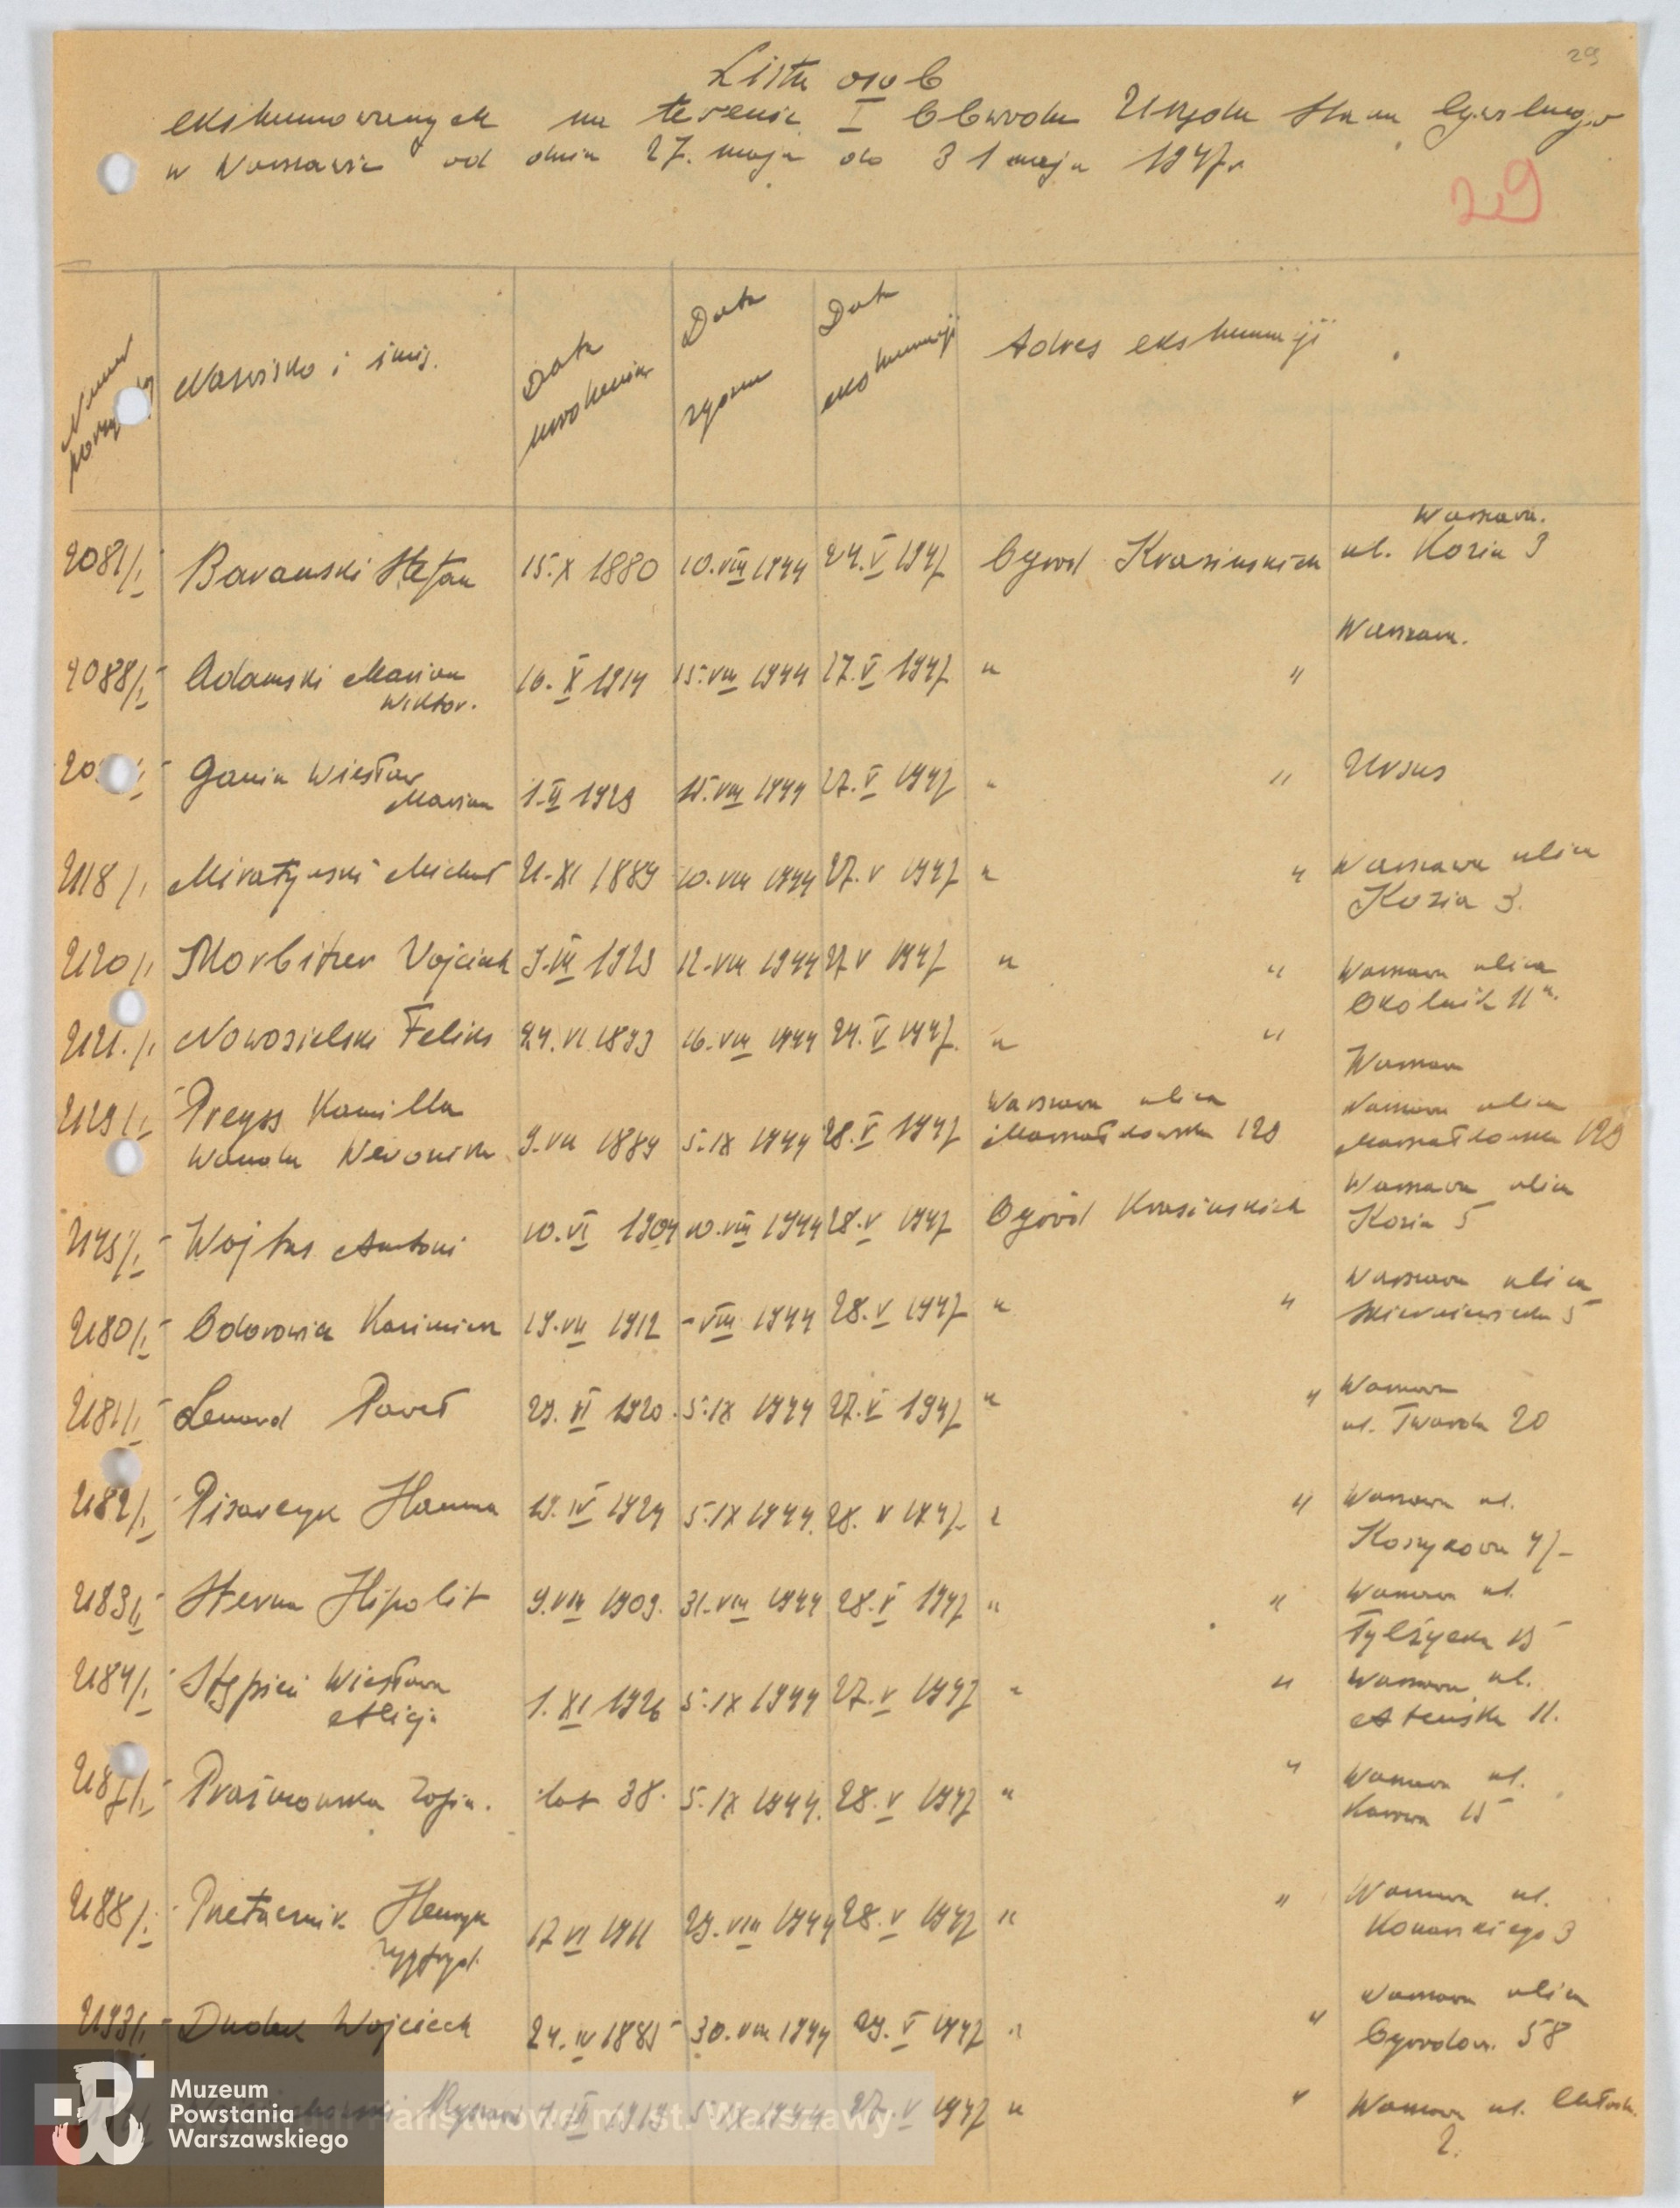 29
Lista osób
ekshumowanych na terenie I Obwodu Urzędu Stanu Cywilnego
w Warszawie od dnia 27. maja do 31 maja 1947r
29
Numer porządkowy
Nazwisko i imię.
Data urodzenia
Data zgonu
Data ekshumacji
Adres ekshumacji
2081/I Barański Stefan 15.X 1880 10.VIII 1944 27.V 1947 Ogród Krasińskich Warszawa. ul. Kozia 3
2088/I Adamski Marian Wiktor. 16.X 1914 15.VIII 1944 27.V 1947 " " Warszawa.
20 Gania Wiesław Marian 1.II 1929 15.VIII 1944 27.V 1947 " " Ursus
2118/I Michał 21.XI 1889 10.VIII 1944 27.V 1947 " " Warszawa ulica Kozia 3.
2120/I Morbitzer Wojciech 9.III 1923 12.VIII 1944 27.V 1947 " " Warszawa ulica Okólnik 11a.
2121/I Nowosielski Feliks 24.VI 1893 16.VIII 1944 27.V 1947 " " Warszawa
2129/I Preyss Kamilla Wanda Weronika 9.VII 1889 5.IX 1944 28.V 1947 Warszawa ulica Marszałkowska 129 Warszawa ulica Marszałkowska 129
2175/I Wojtas Antoni 10.VI 1904 10.VIII 1944 28.V 1947 Ogród Krasińskich Warszawa ulica Kozia 5
2180/I Odorowicz Kazimierz 19.VII 1912 -VIII 1944 28.V 1947 " " Warszawa ulica Skierniewicka 5
2181/I Lenard Paweł 29.VI 1920. 5.IX 1944 27.V 1947 " " Warszawa ul. Twarda 20
2182/I Pisarczyk Hanna 19.IV 1924 5.IX 1944. 28.V 1947 " " Warszawa ul. Koszykowa
2183/I Sterna Hipolit 9.VIII 1909. 31.VIII 1944 28.V 1947 " " Warszawa ul. Tylżycka 15
2184/I Stępień Wiesława Alicja 1.XI 1926 5.IX 1944 27.V 1947 " " Warszawa ul. Ateńska 11.
2187/I Praźmowska Zofia. lat 38. 5.IX 1944. 28.V 1947 " " Warszawa ul. Karowa 15
2188/I Henryk Zygfryd. 17 VI 1911 29.VIII 1944 28.V 1947 " " Warszawa ul. Konarskiego 3
2193/I Dudek Wojciech 24.IV 1885 30.VIII 1944 29.V 1947 " " Warszawa ulica Ogrodowa. 58
Ryszard 1919 5.IX 1944 27.V 1947 " " Warszawa ul. Chłodna 2.
Muzeum
Powstania
Warszawskiego
Państwowe m.st. Warszawy